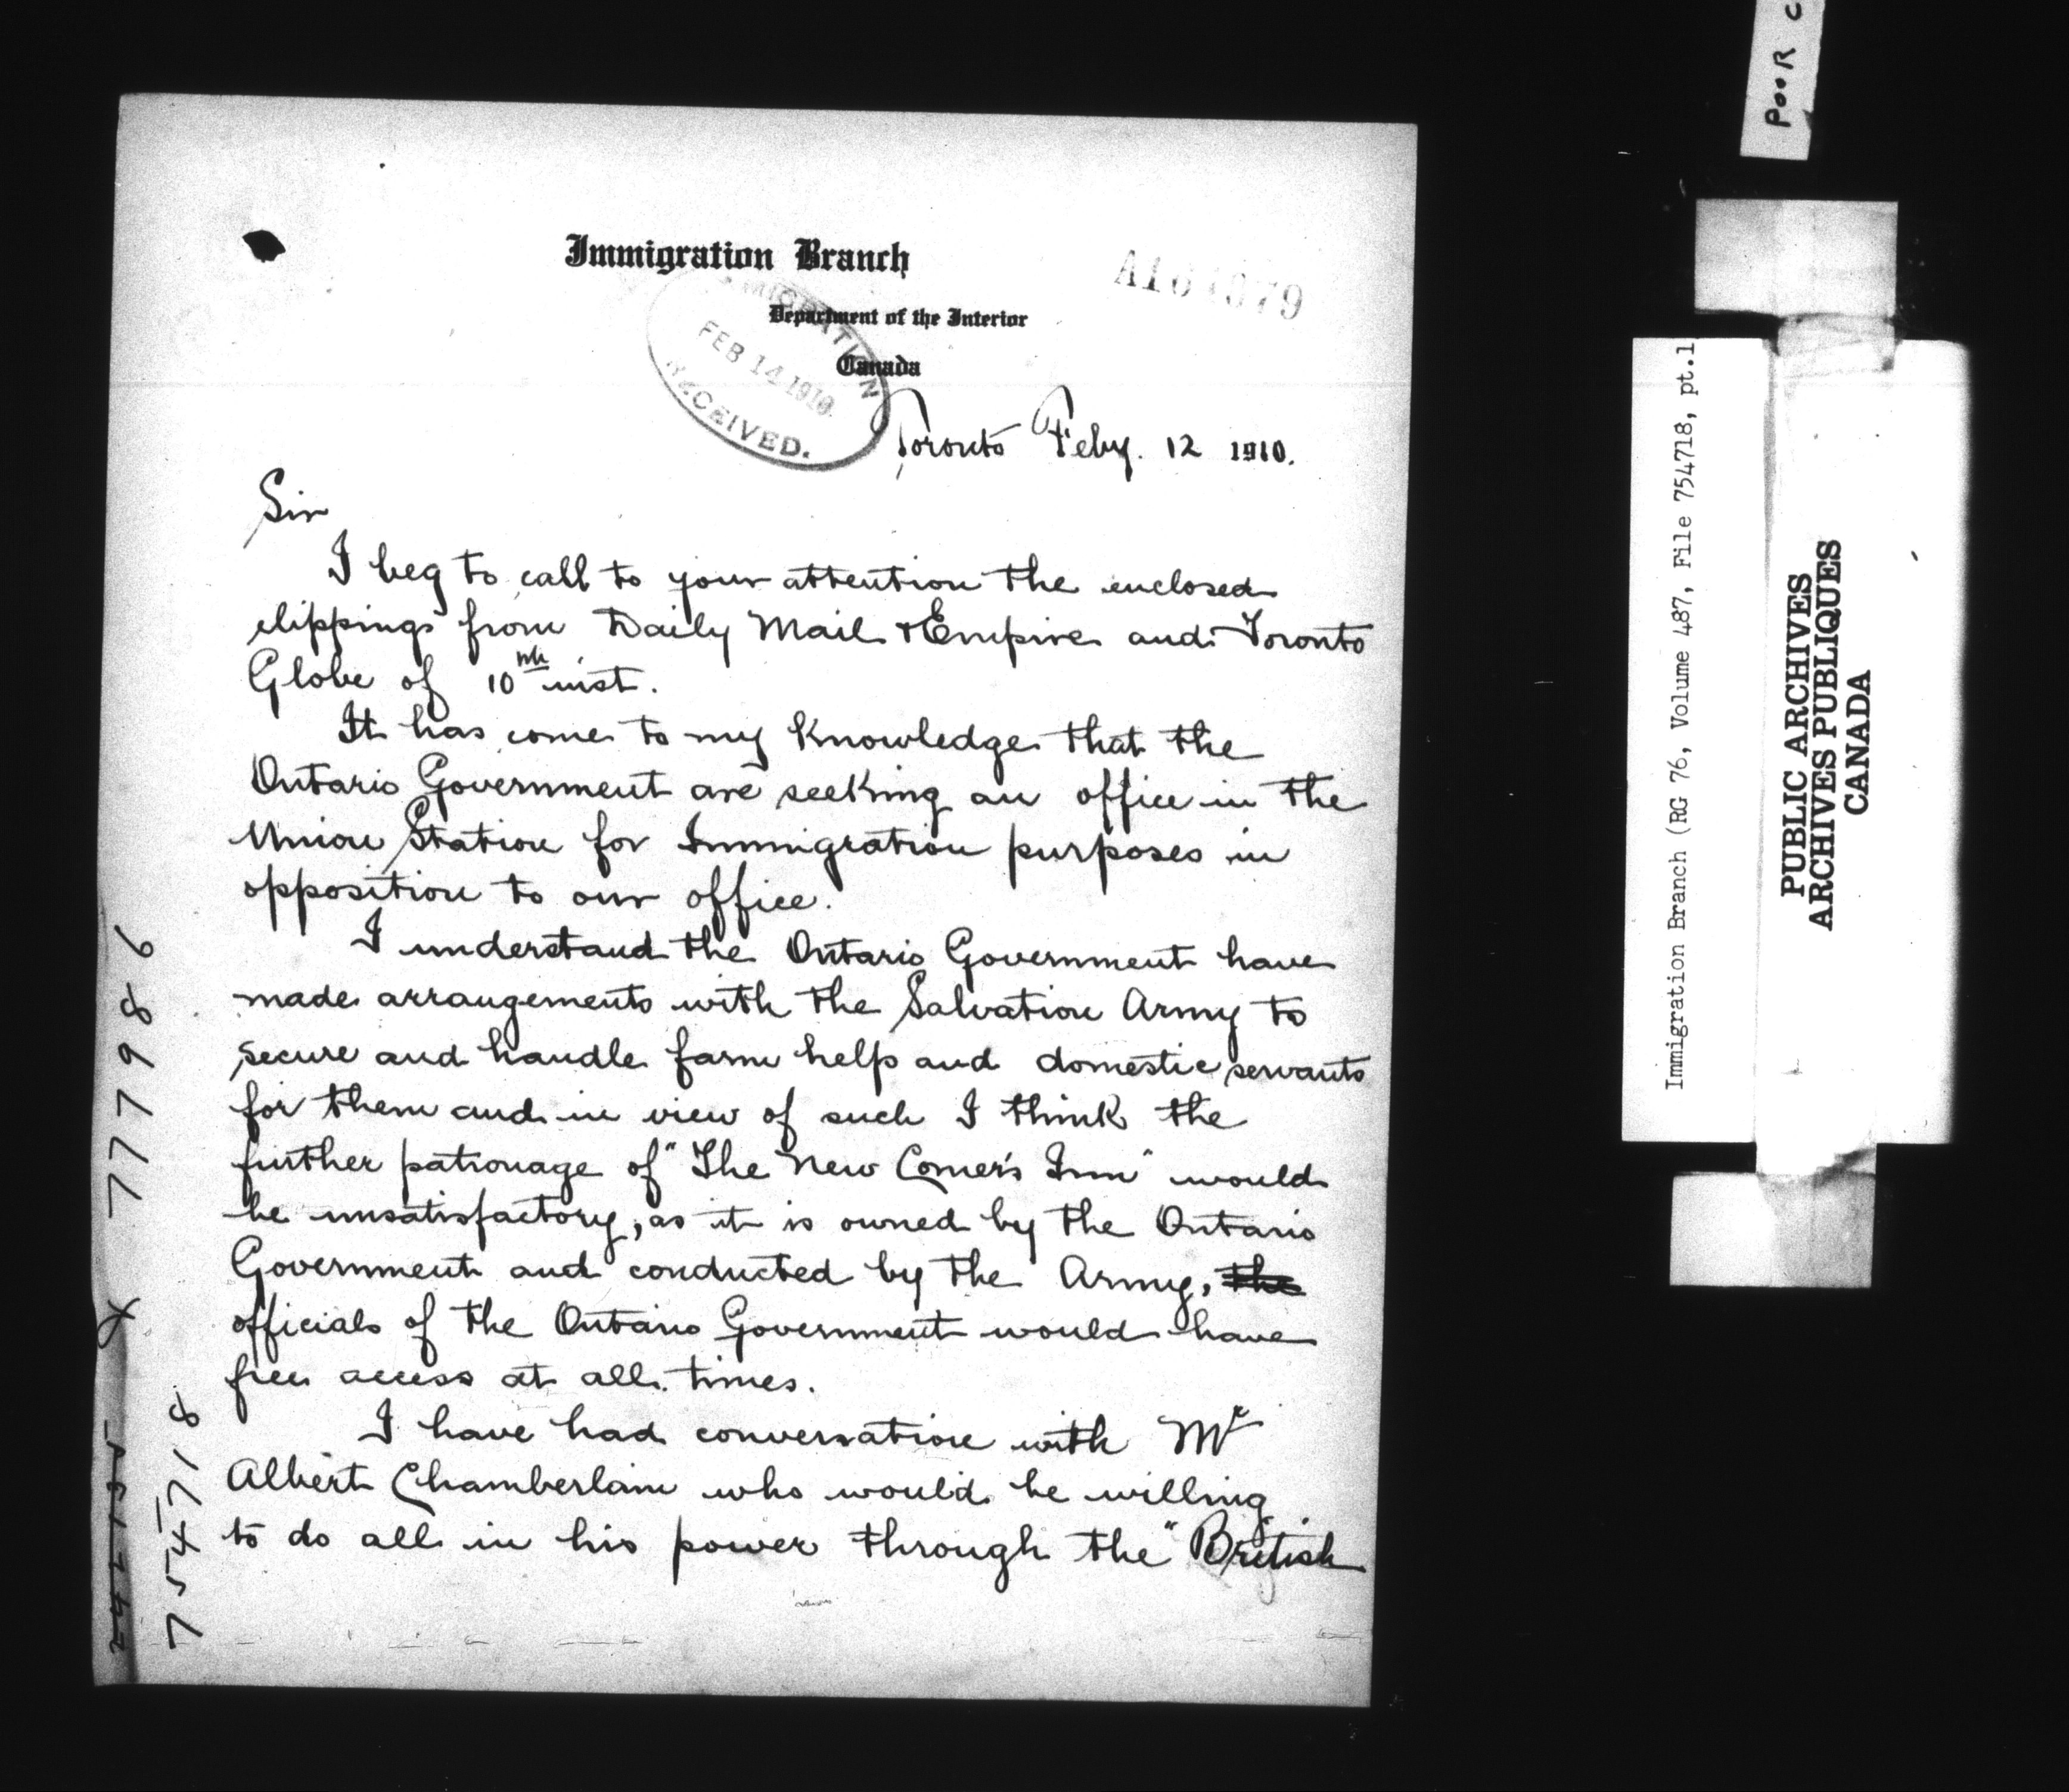 Immigration Branch
Department of the Interior
Canada
IMMIGRATION
FEB 14 1910
RECEIVED.
Toronto Feby. 12 1910.
Sir
I beg to call to your attention the enclosed
clippings from Daily Mail & Empire and Toronto
Globe of 10th inst.
It has come to my knowledge that the
Ontario Government are seeking an office in the
Union Station for Immigration purposes in
opposition to our office.
I understand the Ontario Government have
made arrangements with the Salvation Army to
secure and handle farm help and domestic servants
for them and in view of such I think the
further patronage of "The New Comer's Inn" would
be unsatisfactory, as it is owned by the Ontario
Government and conducted by the Army, the
officials of the Ontario Government would have
free access at all times.
I have had conversation with Mr
Albert Chamberlain who would be willing
to do all in his power through the "British
777986
754718
POOR C
Immigration Branch (RG 76, Volume 487, File 754718, pt.1
PUBLIC ARCHIVES
ARCHIVES PUBLIQUES
CANADA